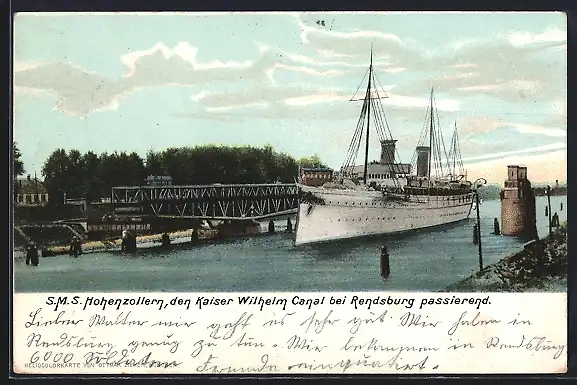 S.M.S. Hohenzollern, den Kaiser Wilhelm Canal bei Rendsburg passierend.
Lieber Walter mir geht es sehr gut. Wir haben in
Rendsburg genug zu tun. Wir bekommen in Rendsburg
6000 Soldaten Fremde einquatirt.
HELIOCOLORKARTE VON OTTMAR ZIEHER, MÜNCHEN